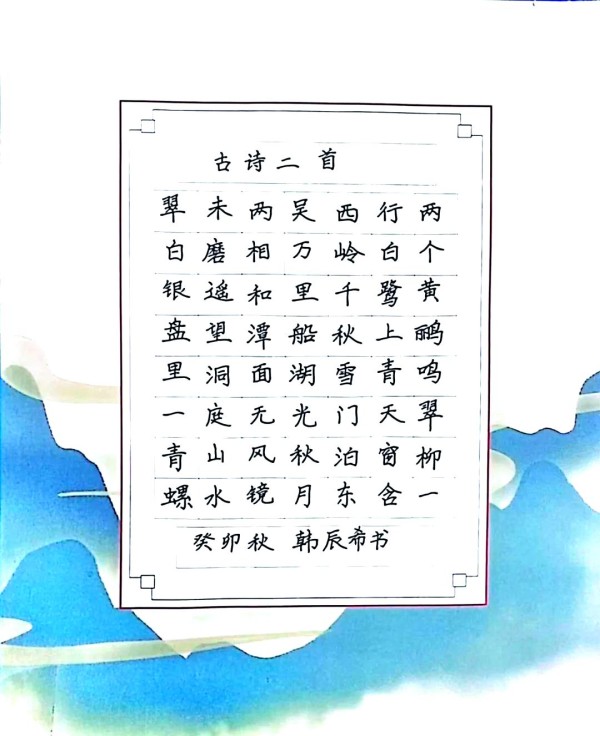 古诗二首
两个黄鹂鸣翠柳一
行白鹭上青天窗含
西岭千秋雪门泊东
吴万里船湖光秋月
两相和潭面无风镜
未磨遥望洞庭山水
翠白银盘里一青螺
癸卯秋 韩辰希书